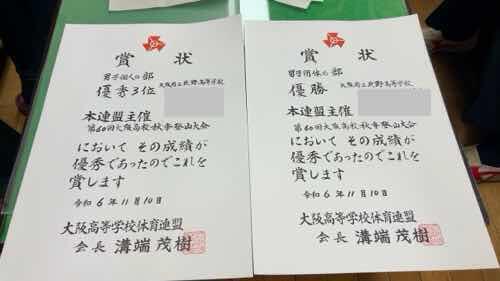 賞状
男子個人の部
大阪府立牧野高等学校
優秀3位
本連盟主催
第60回大阪高校・秋季登山大会
において その成績が
優秀であったのでこれを
賞します
令和6年11月10日
大阪高等学校体育連盟
会長 溝端茂樹
賞状
男子団体の部
大阪府立牧野高等学校
優勝
本連盟主催
第60回大阪高校・秋季登山大会
において その成績が
優秀であったのでこれを
賞します
令和6年11月10日
大阪高等学校体育連盟
会長 溝端茂樹